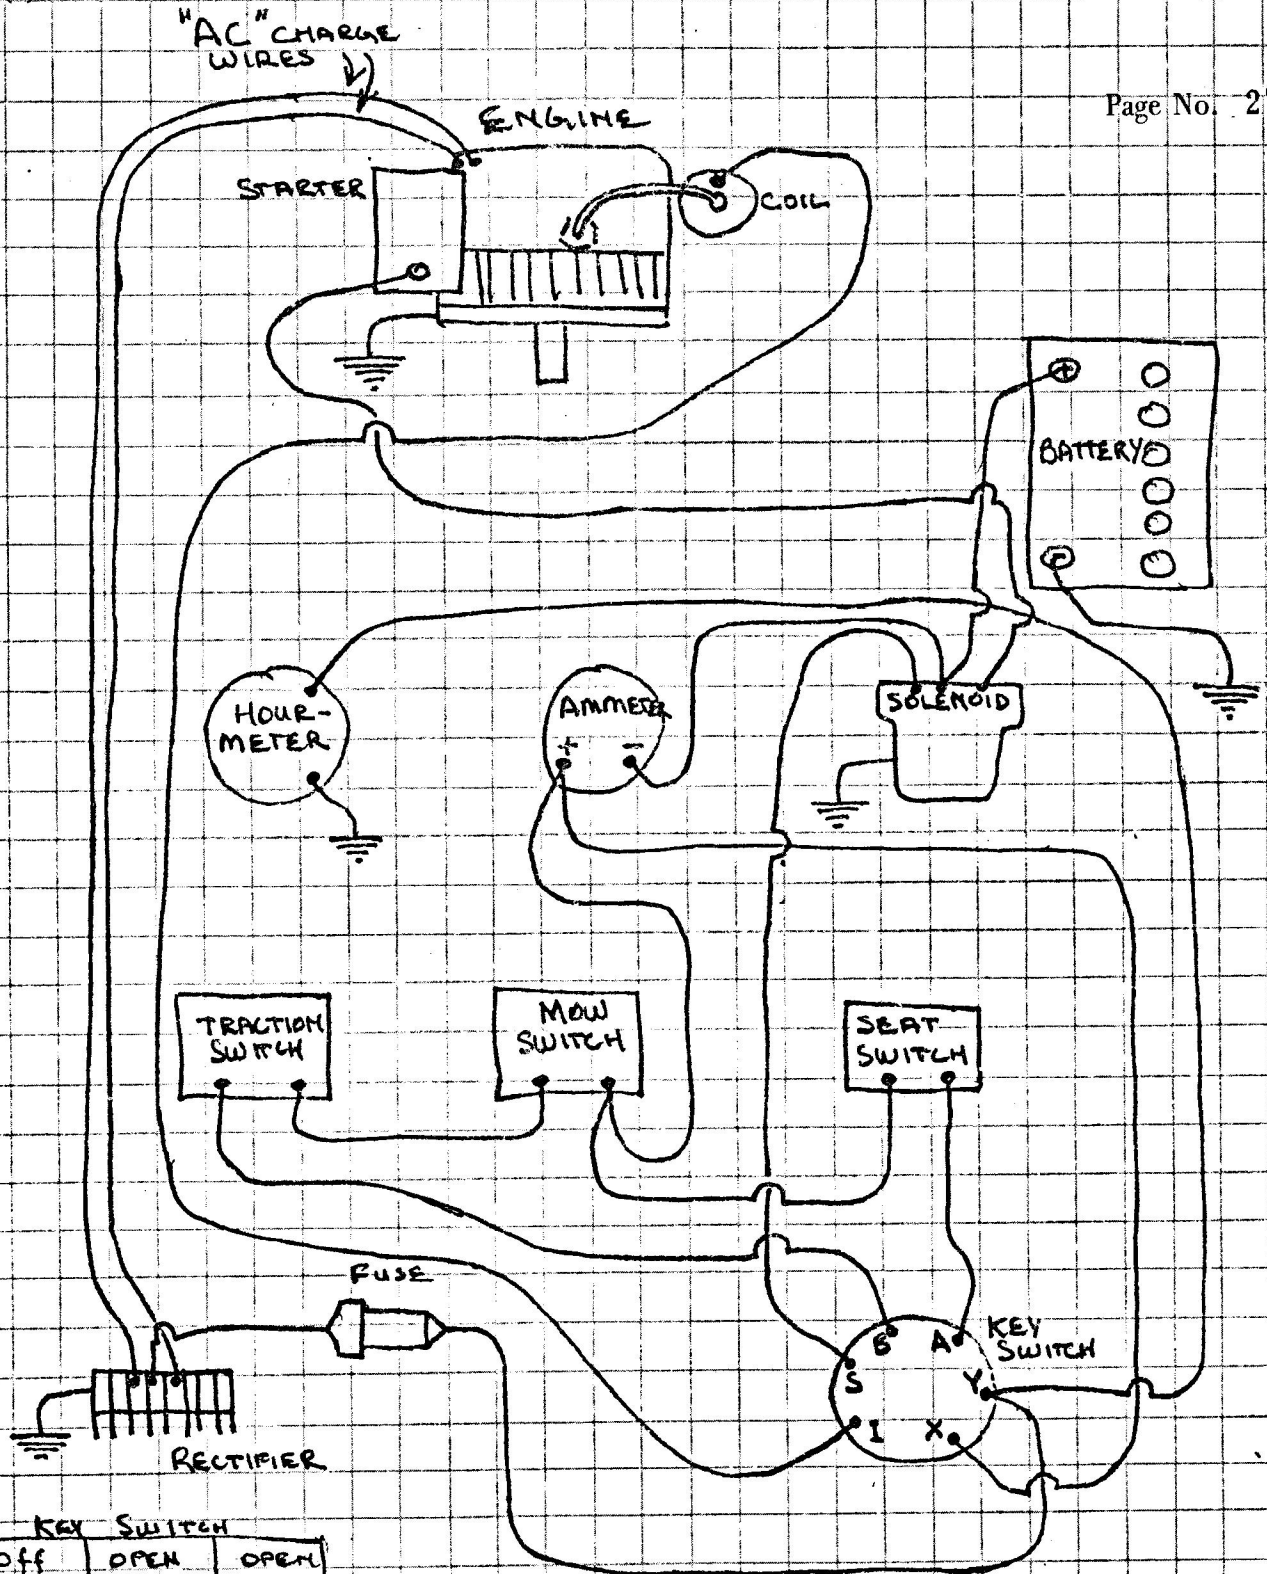 "AC" CHARGE
WIRES
Page No. 2
ENGINE
STARTER
COIL
+
BATTERY
-
HOUR-
METER
AMMETER
+ -
SOLENOID
TRACTION
SWITCH
MOW
SWITCH
SEAT
SWITCH
FUSE
B A
KEY
SWITCH
S Y
I X
RECTIFIER
KEY SWITCH
Off OPEN OPEN